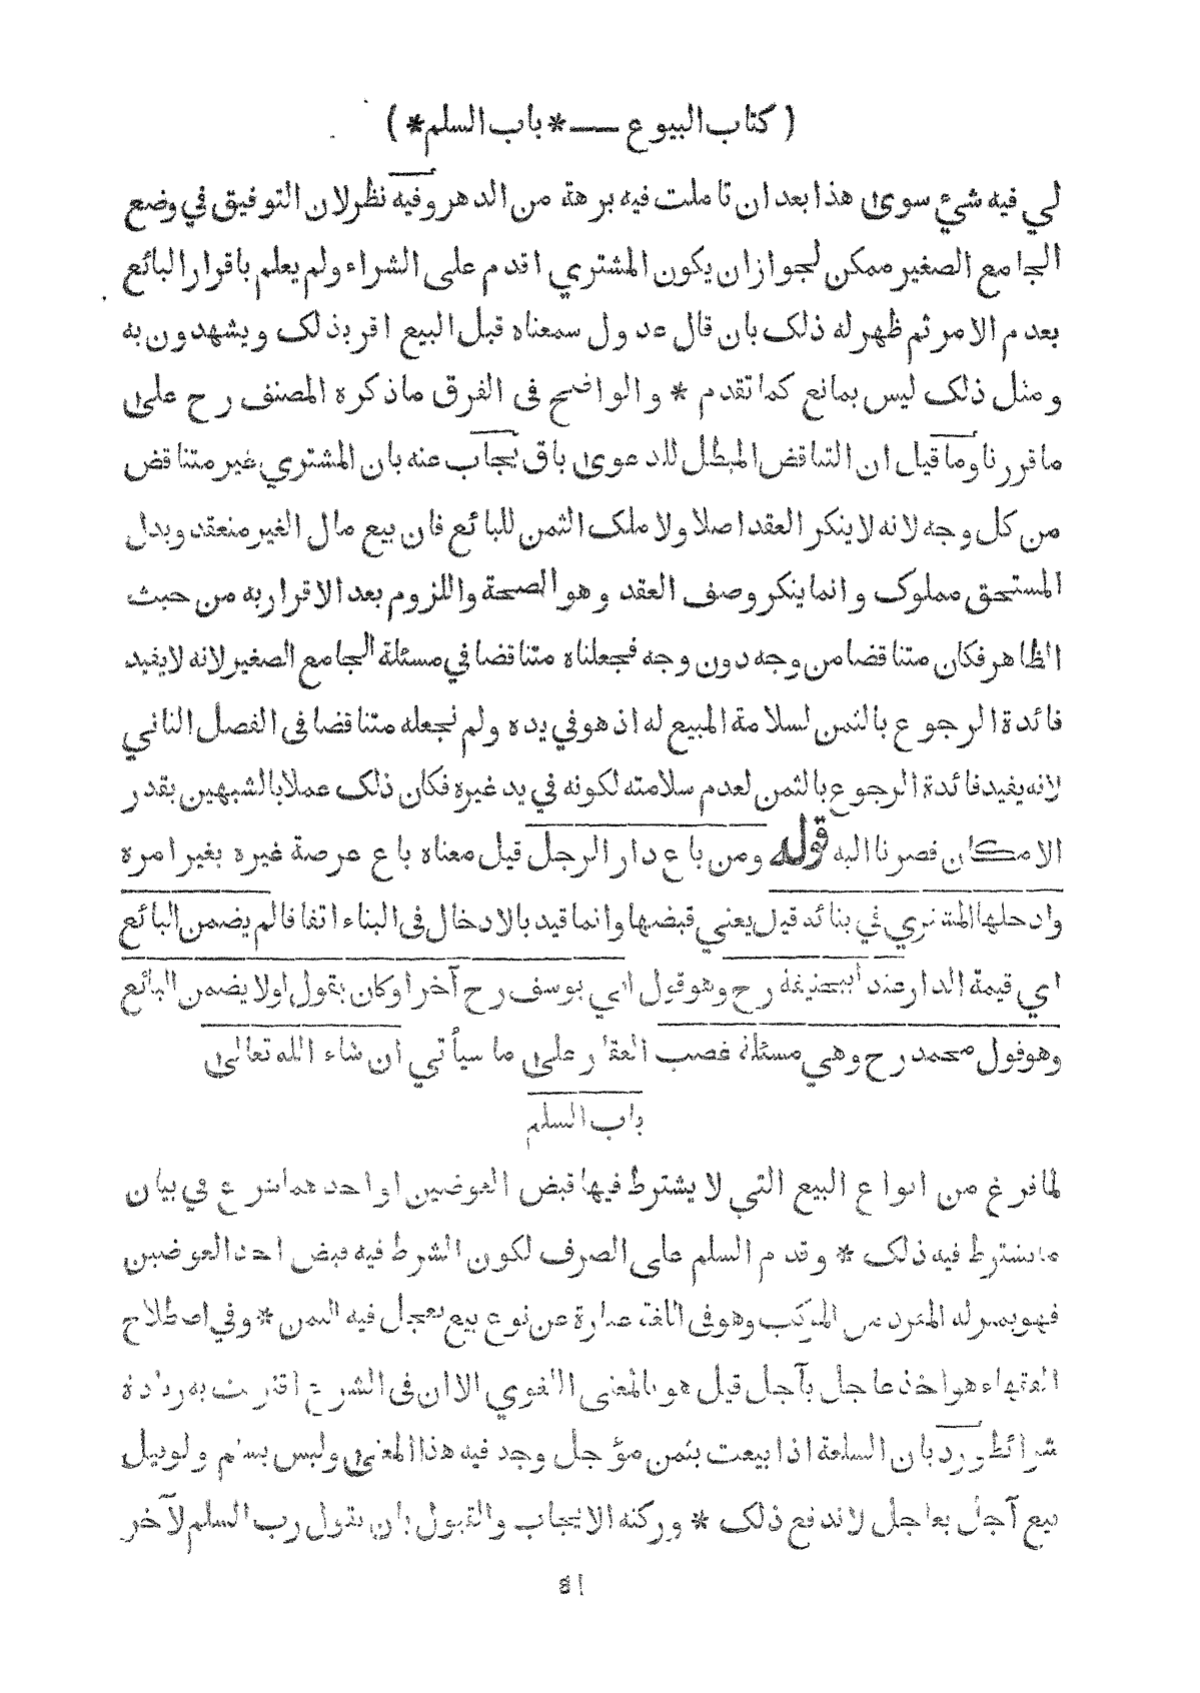 ( كتاب البيوع — * باب السلم * )
لي فيه شيء سوى هذا بعد ان تاملت فيه برهة من الدهر وفيه نظر لان التوفيق في وضع
الجامع الصغير ممكن لجواز ان يكون المشتري اقدم على الشراء ولم يعلم باقرار البائع
بعدم الامر ثم ظهر له ذلك بان قال عدول سمعناه قبل البيع اقر بذلك ويشهدون به
ومثل ذلك ليس بمانع كما تقدم * والواضح في الفرق ماذكره المصنف رح على
ماقررنا وما قيل ان التناقض المبطل للدعوى باق يجاب عنه بان المشتري غير متناقض
من كل وجه لانه لا ينكر العقد اصلا ولا ملك الثمن للبائع فان بيع مال الغير منعقد وبدل
المستحق مملوك وانما ينكر وصف العقد وهو الصحة واللزوم بعد الاقرار به من حيث
الظاهر فكان متناقضا من وجه دون وجه فجعلناه متناقضا في مسئلة الجامع الصغير لانه لا يفيد
فائدة الرجوع بالثمن لسلامة المبيع له اذ هو في يده ولم نجعله متناقضا في الفصل الثاني
لانه يفيد فائدة الرجوع بالثمن لعدم سلامته لكونه في يد غيره فكان ذلك عملا بالشبهين بقدر
الامكان فصرنا اليه قوله ومن باع دار الرجل قيل معناه باع عرصة غيره بغير امره
وادخلها المشتري في بنائه قيل يعني قبضها وانما قيد بالادخال في البناء اتفاقا لم يضمن البائع
اي قيمة الدار عند ابيحنيفة رح وهو قول ابي يوسف رح آخرا وكان يقول اولا يضمن البائع
وهو قول محمد رح وهي مسئلة غصب العقار على ما سيأتي ان شاء الله تعالى
باب السلم
لما فرغ من انواع البيع التي لا يشترط فيها قبض العوضين او احدهما شرع في بيان
ما يشترط فيه ذلك * وقدم السلم على الصرف لكون الشرط فيه قبض احد العوضين
فهو بمنزلة المفرد من المركب وهو في اللغة عبارة عن نوع بيع يعجل فيه الثمن * وفي اصطلاح
الفقهاء هو اخذ عاجل بآجل قيل هو بالمعنى اللغوي الا ان في الشرع اقترنت به زيادة
شرائط ورد بان السلعة اذا بيعت بثمن مؤجل وجد فيه هذا المعنى وليس بسلم ولو قيل
بيع آجل بعاجل لاندفع ذلك * وركنه الايجاب والقبول بان يقول رب السلم لآخر